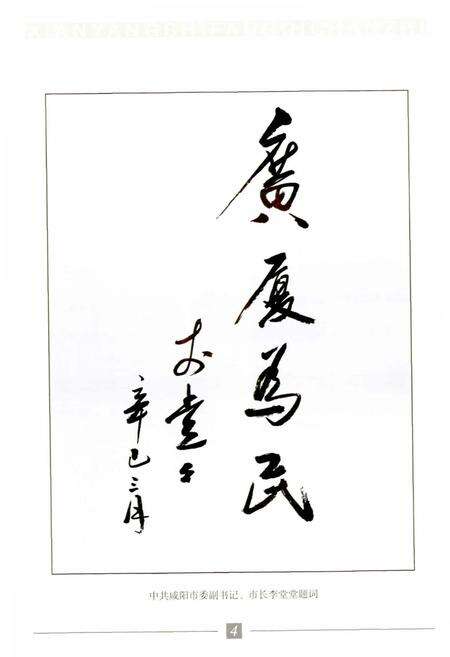 廣厦為民
李堂堂
辛巳三月
中共咸阳市委副书记、市长李堂堂题词
4